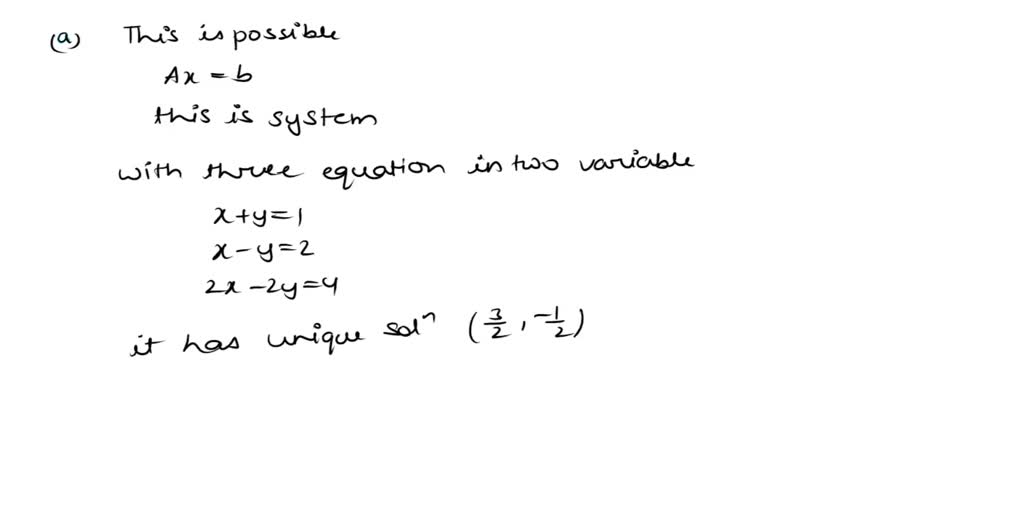 (a) This is possible
Ax = b
this is system
with three equation in two variable
x+y=1
x-y=2
2x-2y=4
it has unique solⁿ (3/2, -1/2)